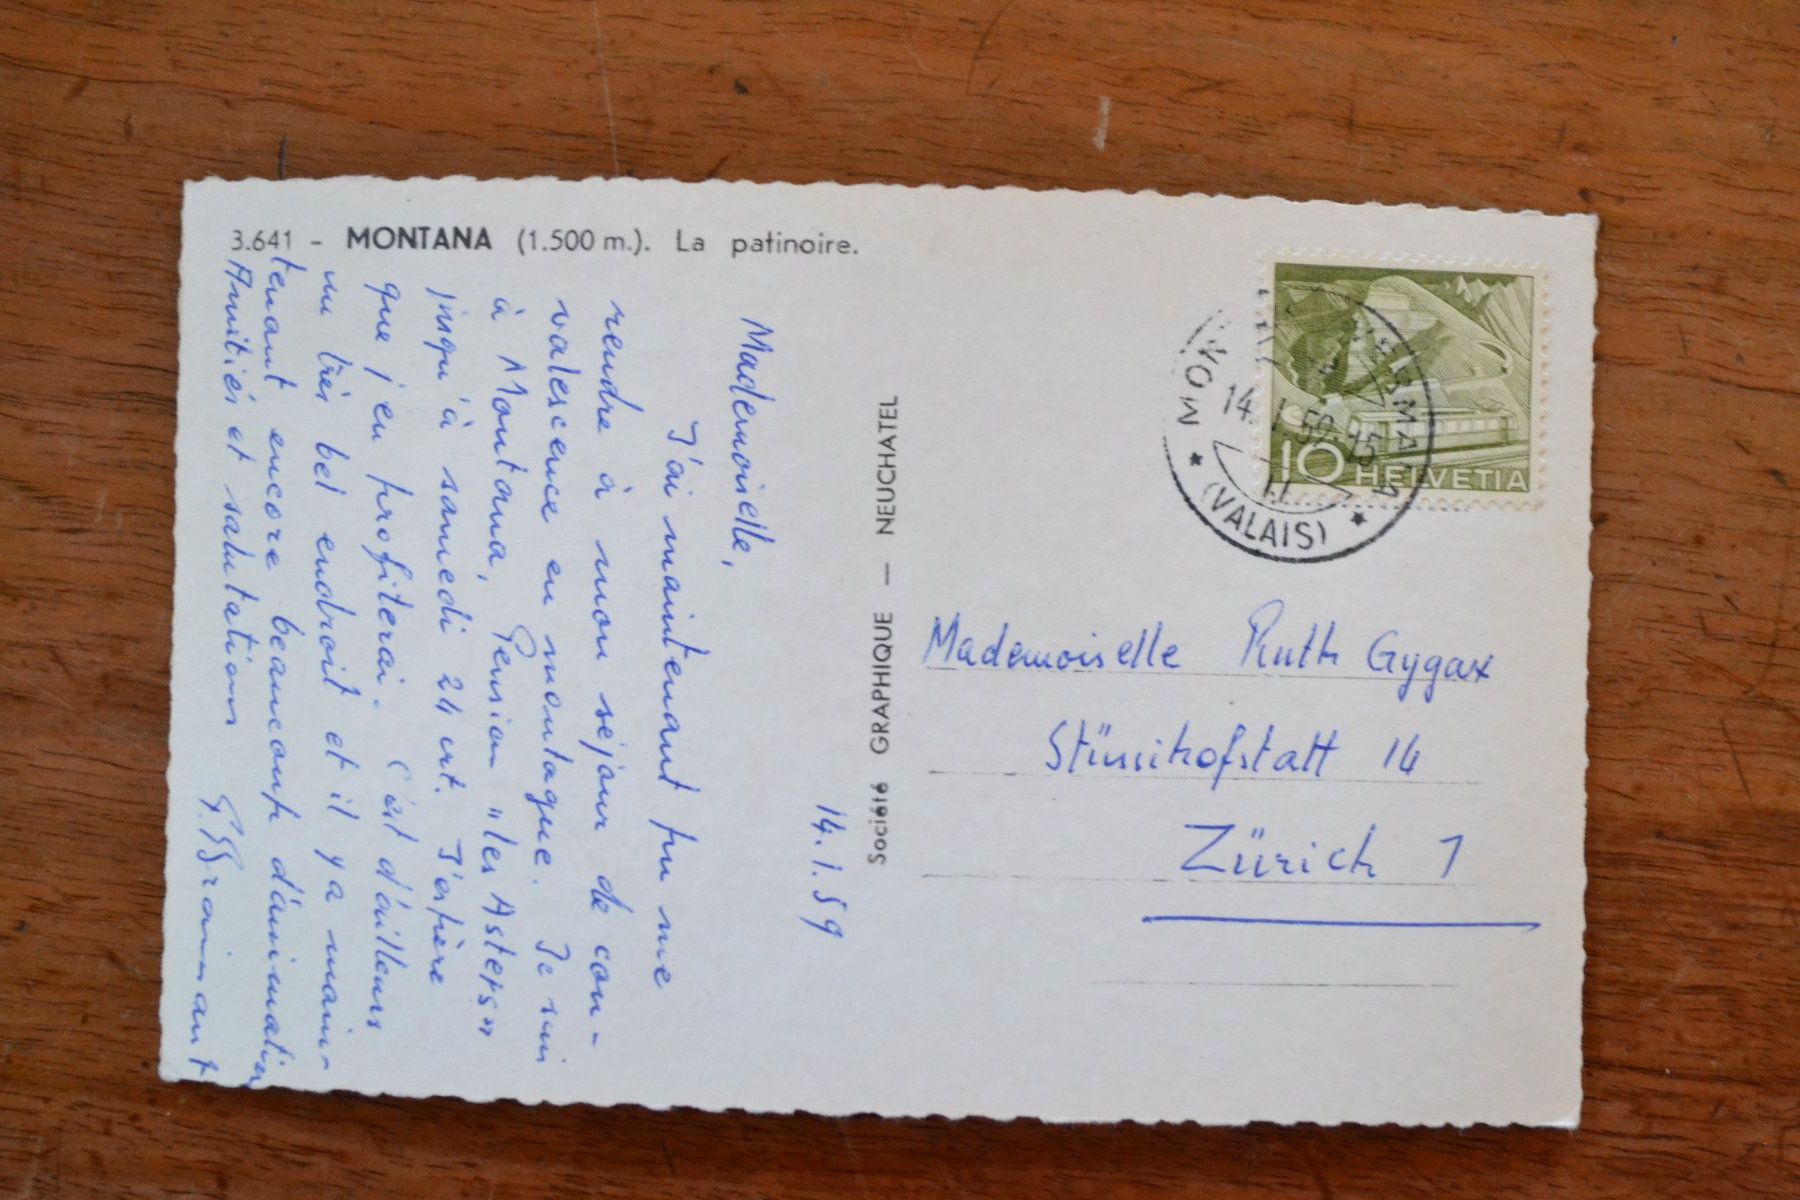 3.641 - MONTANA (1.500 m.). La patinoire.
14.1.59
Mademoiselle,
J'ai maintenant pu me
rendre à mon séjour de con-
valescence en montagne. Je suis
à Montana, Pension "les Asters"
jusqu'à samedi 24 crt. J'espère
que j'en profiterai. C'est d'ailleurs
un très bel endroit et il y a main-
tenant encore beaucoup d'animation
Amitiés et salutations
Société GRAPHIQUE — NEUCHATEL
MONTANA-VERMALA
14.1.59.-15
(VALAIS)
10 HELVETIA
Mademoiselle Ruth Gygax
Stüssihofstatt 14
Zürich 1